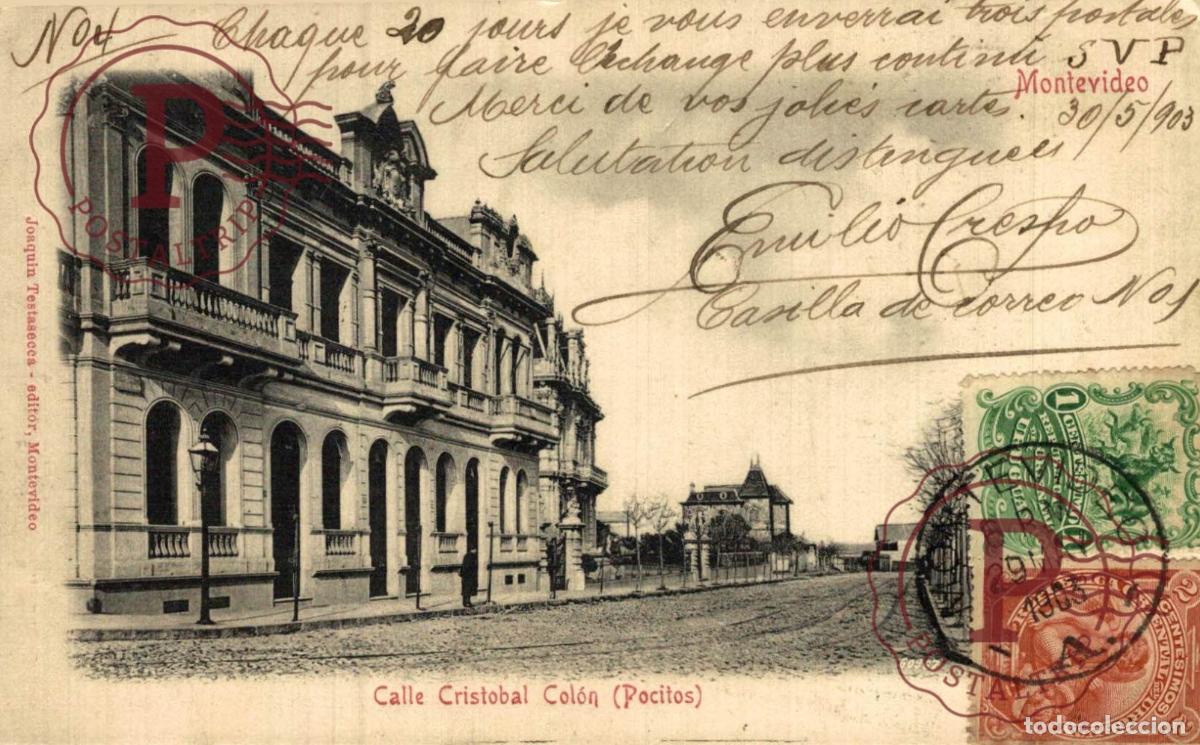 No 4 Chaque 20 jours je vous enverrai trois postales
pour faire Echange plus continu S V P
Montevideo
Merci de vos jolies cartes. 30/5/903
Salutation distinguees
Emilio Crespo
Casilla de Correo No 5
Joaquin Testasecca - editór, Montevideo
Calle Cristobal Colón (Pocitos)
MONTEVIDEO
29
1903
A.
1
CENTESIMOS
P
POSTALTRIP
P
POSTALTRIP
todocoleccion